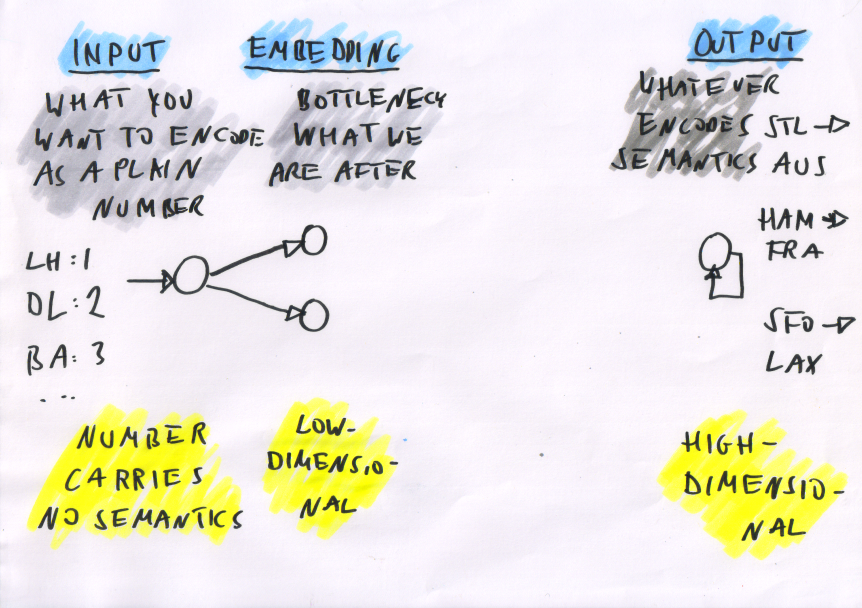 INPUT
WHAT YOU
WANT TO ENCODE
AS A PLAIN
NUMBER
LH:1
DL:2
BA:3
...
NUMBER
CARRIES
NO SEMANTICS
EMBEDDING
BOTTLENECK
WHAT WE
ARE AFTER
LOW-
DIMENSIO-
NAL
OUTPUT
WHATEVER
ENCODES
SEMANTICS
STL →
AUS
HAM →
FRA
SFO →
LAX
HIGH-
DIMENSIO-
NAL